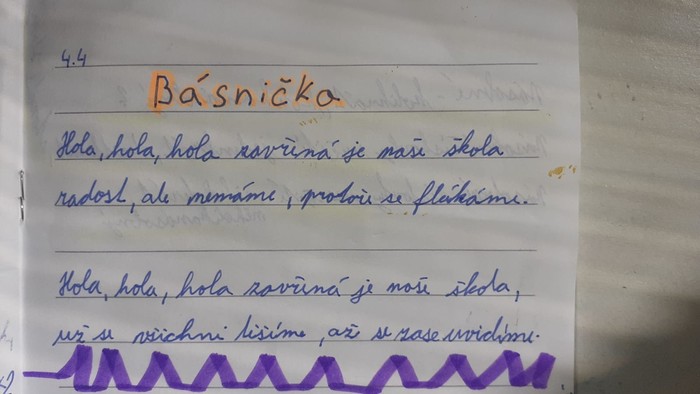 4.4
Básnička
Hola, hola, hola zavřená je naše škola
radost, ale nemáme, protože se flákáme.
Hola, hola, hola zavřená je naše škola,
už se všichni těšíme, až se zase uvidíme.